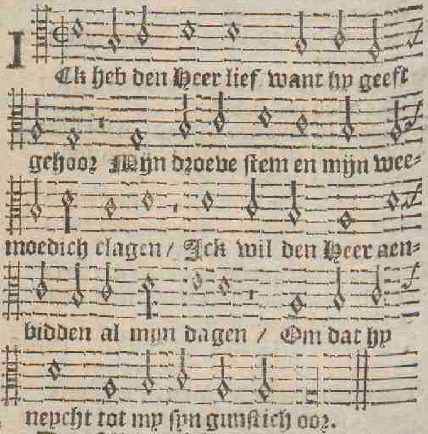 ICk heb den Heer lief want hy geeft
gehoor Mijn droeve stem en mijn wee-
moedich clagen / Ick wil den Heer aen-
bidden al mijn dagen / Om dat hy
neycht tot my syn gunstich oor.